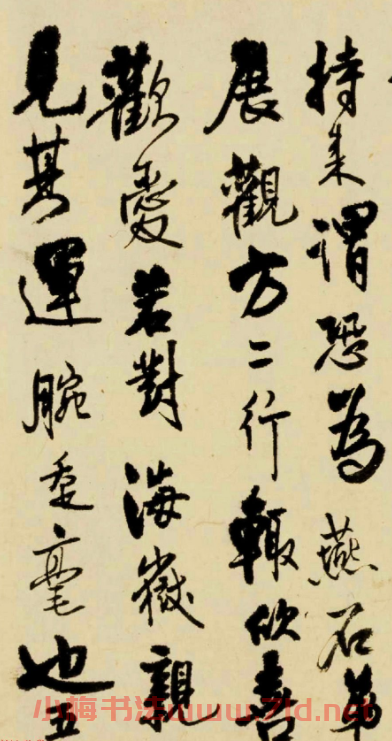 持来謂恐為燕石弟
展觀方二行輙欣喜
歡愛若對海嶽親
見其運腕垂毫也五
小梅书法www.7ld.net